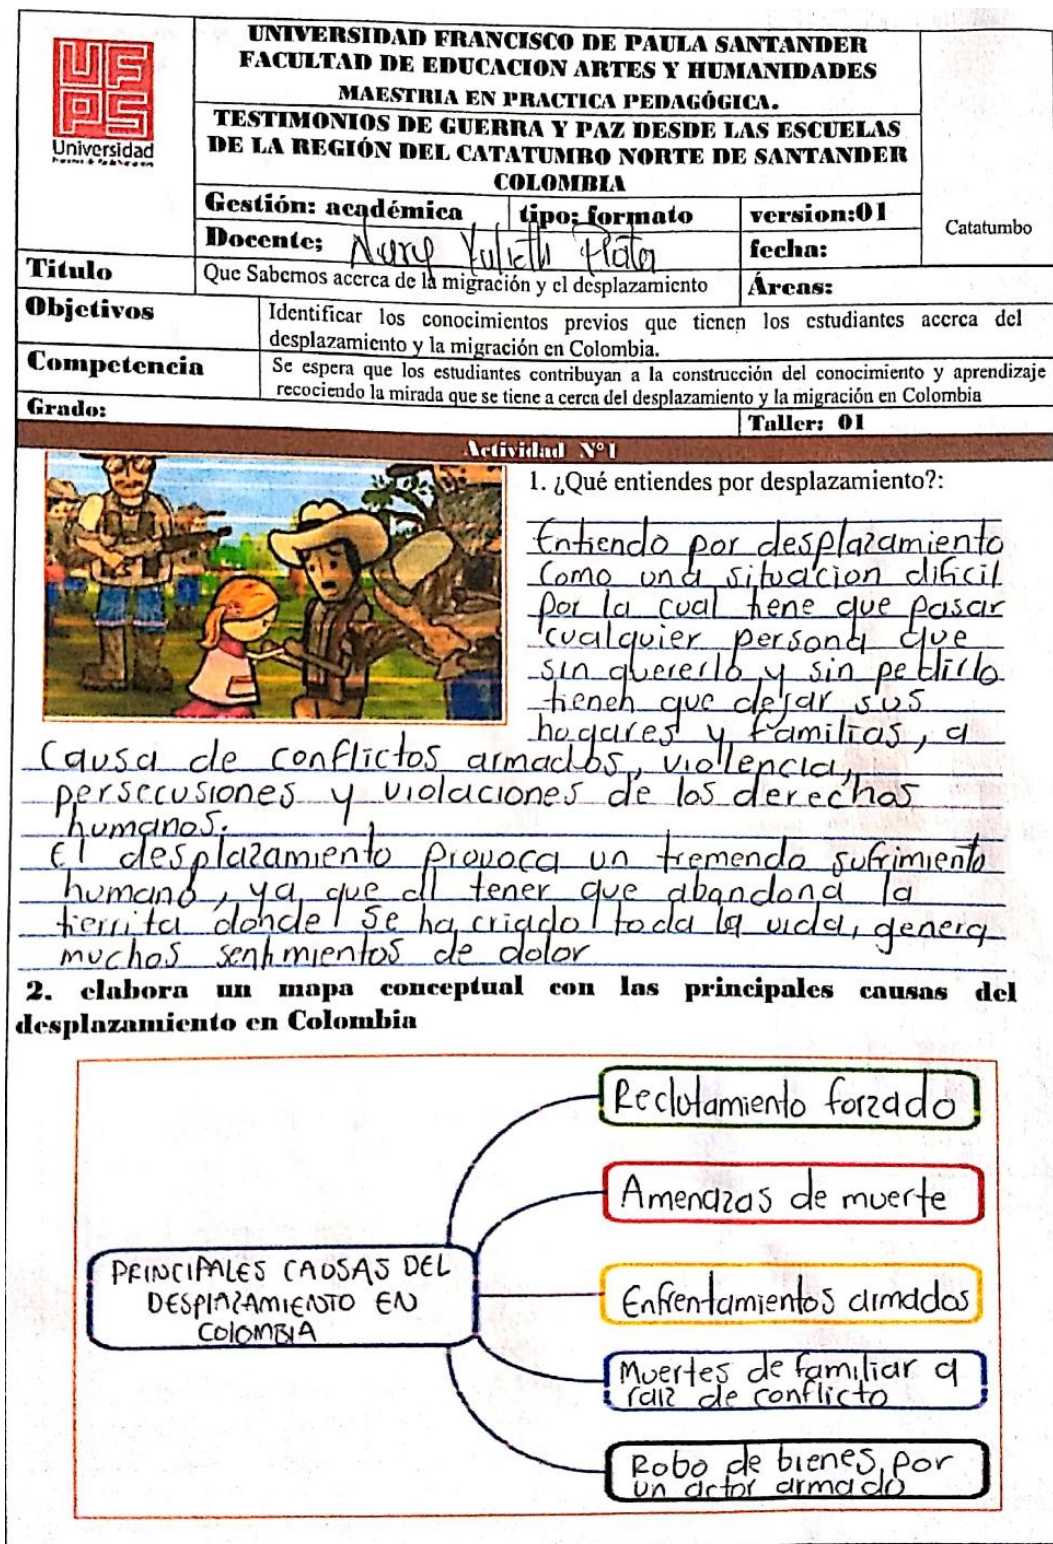 UFPS
Universidad
UNIVERSIDAD FRANCISCO DE PAULA SANTANDER
FACULTAD DE EDUCACION ARTES Y HUMANIDADES
MAESTRIA EN PRACTICA PEDAGÓGICA.
TESTIMONIOS DE GUERRA Y PAZ DESDE LAS ESCUELAS
DE LA REGIÓN DEL CATATUMBO NORTE DE SANTANDER
COLOMBIA
Gestión: académica tipo: formato version:01
Catatumbo
Docente; Yulieth fecha:
Titulo Que Sabemos acerca de la migración y el desplazamiento Áreas:
Objetivos Identificar los conocimientos previos que tienen los estudiantes acerca del
desplazamiento y la migración en Colombia.
Competencia Se espera que los estudiantes contribuyan a la construcción del conocimiento y aprendizaje
recociendo la mirada que se tiene a cerca del desplazamiento y la migración en Colombia
Grado: Taller: 01
Actividad N°1
1. ¿Qué entiendes por desplazamiento?:
Entiendo por desplazamiento
Como una situacion dificil
por la cual tiene que pasar
cualquier persona que
sin quererlo y sin pedirlo
tienen que dejar sus
hogares y familias, a
causa de conflictos armados, violencia,
persecusiones y violaciones de los derechos
humanos.
El desplazamiento provoca un tremendo sufrimiento
humano, ya que al tener que abandona la
tierrita donde se ha criado toda la vida, genera
muchos sentimientos de dolor
2. elabora un mapa conceptual con las principales causas del
desplazamiento en Colombia
Reclutamiento forzado
Amenazas de muerte
PRINCIPALES CAUSAS DEL
DESPLAZAMIENTO EN
COLOMBIA
Enfrentamientos armados
Muertes de familiar a
raiz de conflicto
Robo de bienes por
un actor armado